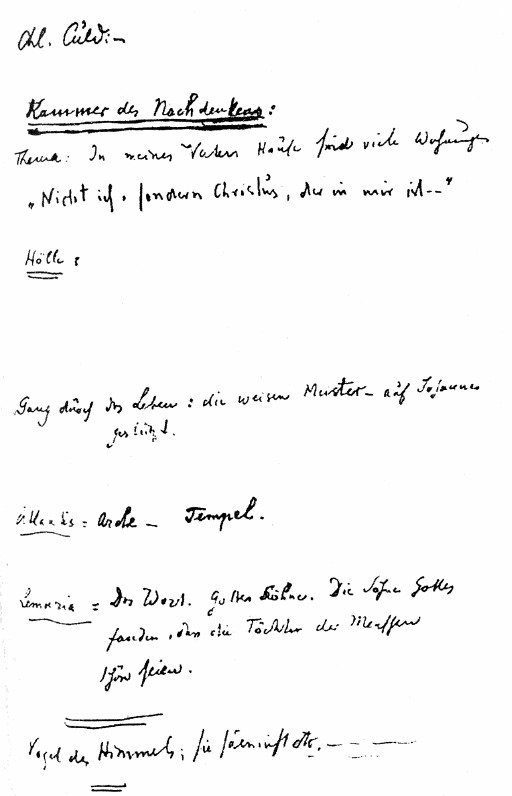 Kammer des Nachdenkens:
Thema: In meines Vaters Hause sind viele Wohnungen
„Nicht ich, sondern Christus, der in mir ist--"
Hölle:
Gang durch das Leben: die weisen Muster - auf Johannes
gestützt.
Atlantis = Arche - Tempel.
Lemuria = Das Wort. Gottes Söhne. Die Söhne Gottes
fanden, dass die Töchter der Menschen
schön seien.
Vogel des Himmels; sie säen nicht etc. - - -